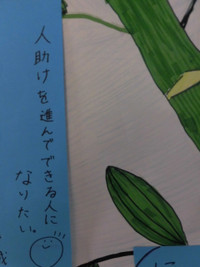 人助けを進んでできる人に
なりたい。